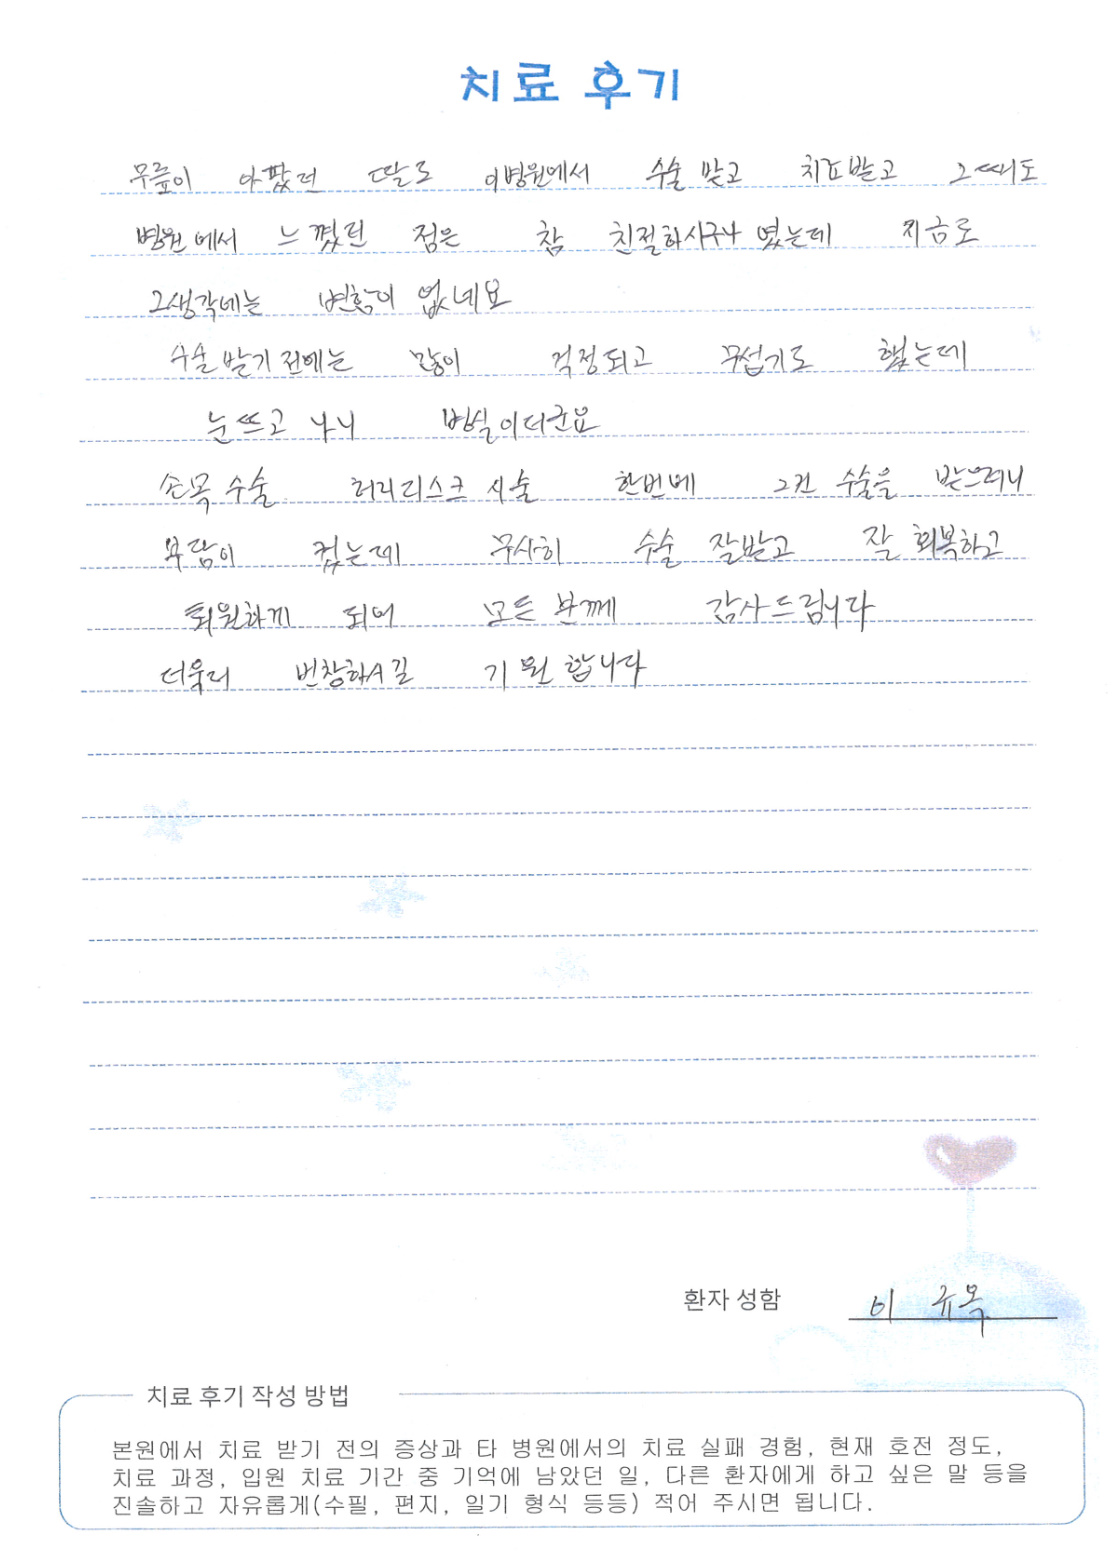 치료 후기
무릎이 아팠던 딸도 이병원에서 수술 받고 치료받고 그때도
병원에서 느꼈던 점은 참 친절하시구나 였는데 지금도
그생각에는 변함이 없네요
수술받기전에는 많이 걱정되고 무섭기도 했는데
눈뜨고 나니 병실이더군요
손목 수술 허리디스크 시술 한번에 2건 수술을 받으려니
부담이 컸는데 무사히 수술 잘받고 잘 회복하고
퇴원하게 되어 모든 분께 감사드립니다
더욱더 번창하시길 기원합니다
환자 성함 이 규목
치료 후기 작성 방법
본원에서 치료 받기 전의 증상과 타 병원에서의 치료 실패 경험, 현재 호전 정도,
치료 과정, 입원 치료 기간 중 기억에 남았던 일, 다른 환자에게 하고 싶은 말 등을
진솔하고 자유롭게(수필, 편지, 일기 형식 등등) 적어 주시면 됩니다.